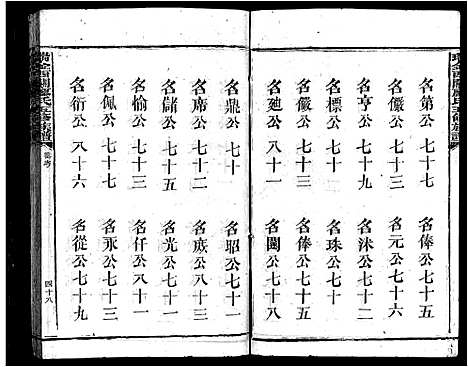 名第公七十七
名儼公七十三
名亨公七十九
名標公七十三
名儼公七十一
名廸公八十一
名俸公七十五
名元公七十六
名沬公七十三
名珠公七十二
名俸公七十五
名閶公七十八
名鼎公七十
名席公七十二
名儲公七十五
名愉公七十三
名佩公七十七
名衍公八十六
名昭公七十一
名庻公八十三
名光公七十一
名仟公八十一
名永公七十三
名從公七十九
四十八